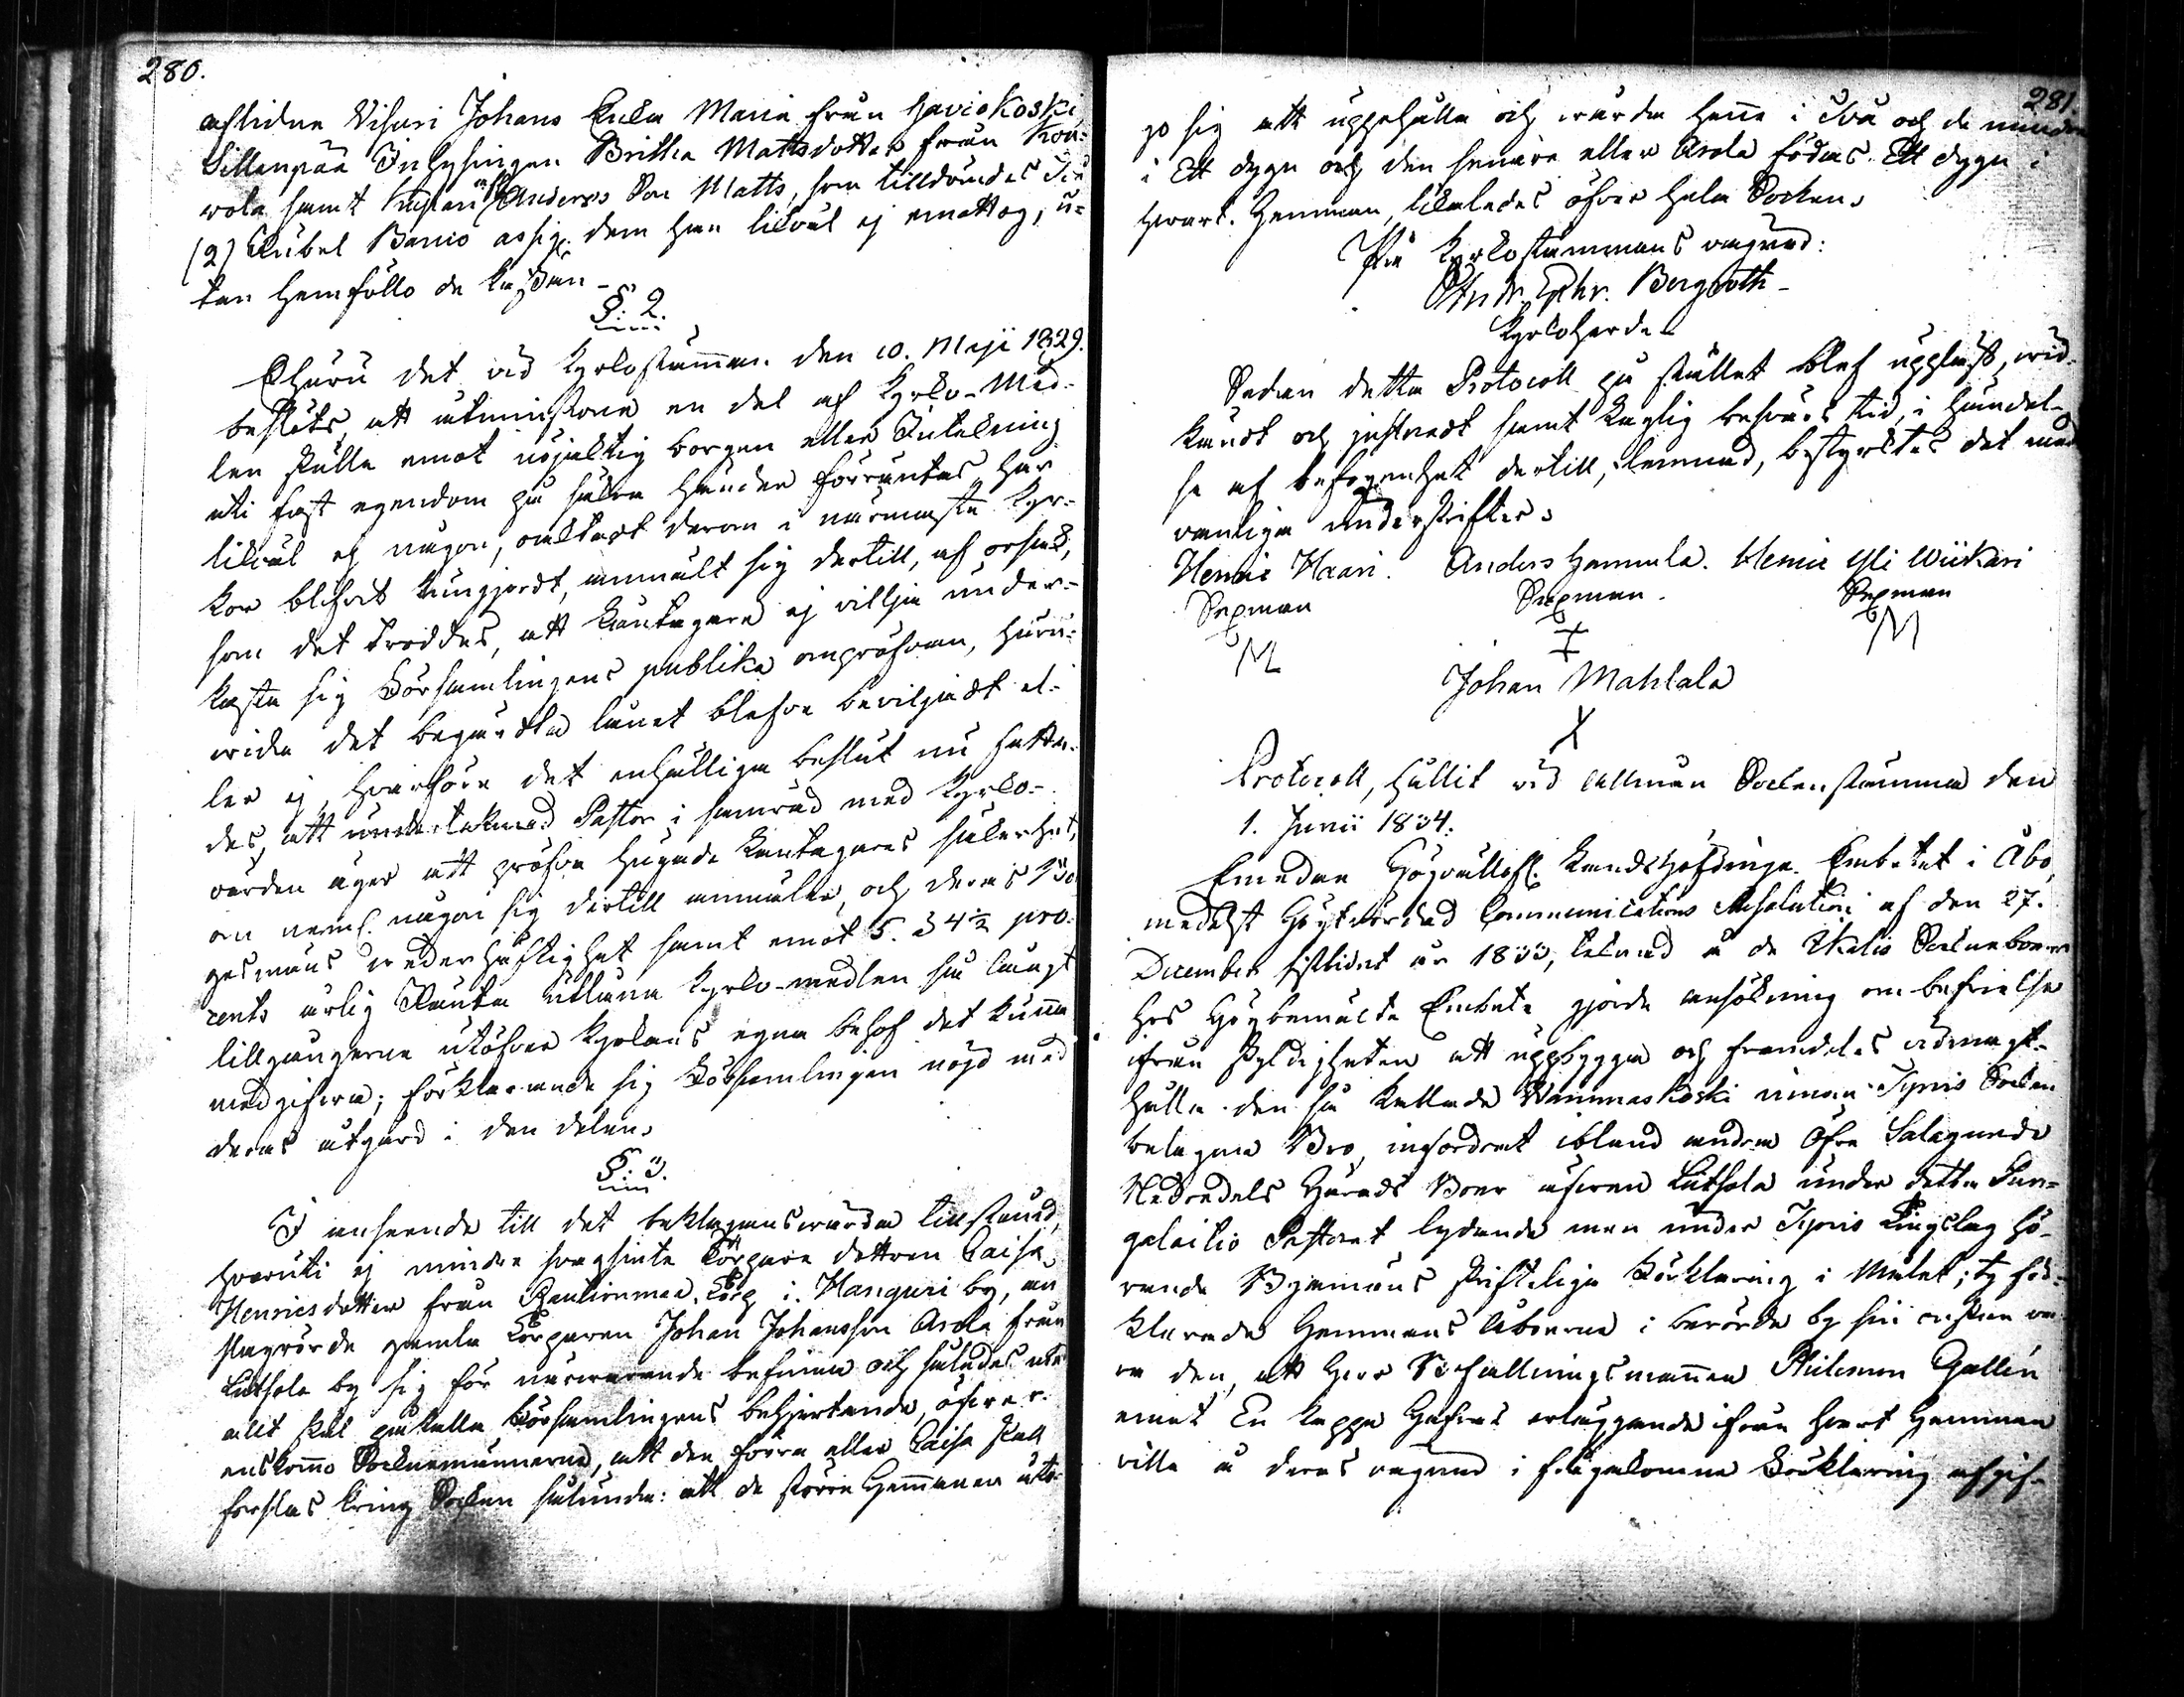 280.
aflidne Visuri Johans Enka Maria från Haviokoski,
Sillenpää Inhysingen Britha Mattsdotter från Kou-
vola samt Anders Son Matts, som tilldömdes Två
(2) Rubel Banco assig. dem han likväl ej emottog, u-
tan hemföllo de kassan –
§. 2.
Ehuru det vid Kyrkostämman den 10. Maji 1829.
beslöts att utminstone en del af Kyrko-Med-
len skulle emot ojäfaktig borgen eller Inteckning
uti fast egendom på säkra händer förräntas har
likväl ej någon, oaktadt derom i närmaste Kyr-
kor blifvit kungjordt, anmält sig dertill, af orsak,
som det troddes, att Låntagare ej villja under-
kasta sig Församlingens publika ompröfvan, huru-
vida det begärda lånet blefve beviljadt el-
ler ej, hvarföre det enhälliga beslut nu fatta-
des, att undertecknad Pastor i samråd med Kyrko-
värden äger att pröfva hugade Låntagares säkerhet,
om neml. någon sig dertill anmäler, och deras Lö-
gesmäns vederhäftighet samt emot 5. à 4½ pro-
cents årlig Ränta utlåna Kyrko-medlen så långt
tillgångarne utöfver Kyrkans egna behof det kunna
medgifva; förklarande sig Församlingen nöjd med
deras åtgärd i den delen.
§. 3.
I anseende till det beklagansvärda tillstånd,
hvaruti ej mindre svagsinte Torpare dottren Caisa
Henricsdotter från Rautionmaa Torp i Hanguri by, än
slagrörde gamla Torparen Johan Johansson Arola från
Liuthola by sig för närvarande befinna och således utan
allt skäl påkalla Församlingens behjertande, öfver-
enskommo Socknemännerne, att den förra eller Caisa skall
forslas kring Socken sålunda: att de större Hemmanen åta-
281.
go sig att uppehålla och vårda henne i Två och de mindre
i Ett dygn och den senare eller Arola födas Ett dygn i
hvart Hemman, likaledes öfver hela Socken.
På Kyrkostämmans vägnar:
Andr. Ephr. Bergroth
Kyrkoherde.
Sedan detta Protocoll på stället blef uppläst, ved-
kändt och justeradt samt Laglig besvärs tid, i händel-
se af befogenhet dertill, lemnad, bestyrktes det med
vanliga underskrifter.
Henric Haari. Anders Hammula. Henric Yli Wiikari
Sexman Sexman. Sexman
Johan Mahlala
Protocoll, hållit vid allmän Sockenstämma den
1. Junii 1834.
Emedan Högvällofl. Landshöfdinge Embetet i Åbo,
medelst Högtvördad Communications Resolution af den 27.
December sistlidet år 1833, teknad å de Ikalis Socknebors
hos Högbemälte Embete gjorde ansökning om befrielse
ifrån skyldigheten att uppbygga och framdeles vidmagt-
hålla den så kallade Wammaskoski innom Tyrvis Socken
belägna Bro, infordrat ibland andra Öfre Satagunda
Nedredels Härads Boer äfven Liuthola under detta Pun-
galaitio Pastorat lydande men under Tyrvis Tingslag hö-
rande Byamäns skriftliga Förklaring i Målet; ty för-
klarade Hemmans Åboerne i berörde by sin önskan va-
ra den, att Herr Befallningsmannen Gallén
emot En kappe Hafras erläggande ifrån hvart Hemman
ville å deras vägnar i frågakomne Förklaring afgif-